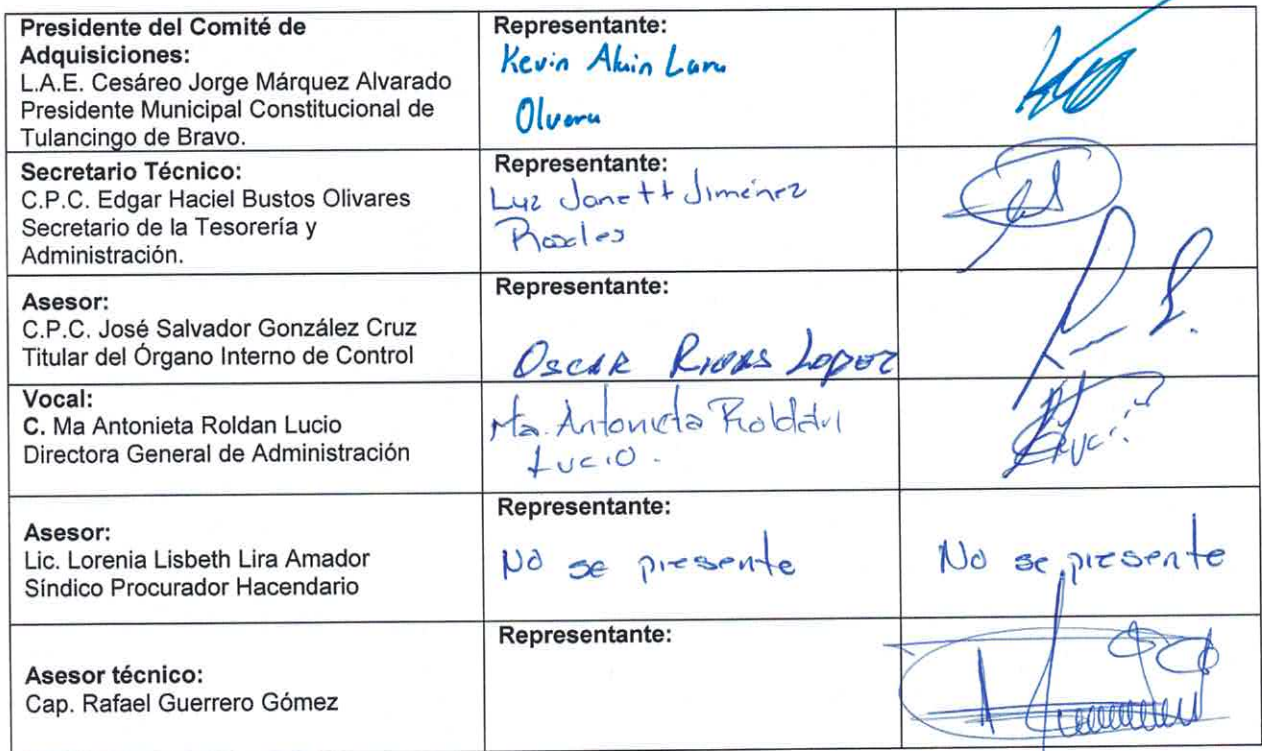 Presidente del Comité de
Adquisiciones:
L.A.E. Cesáreo Jorge Márquez Alvarado
Presidente Municipal Constitucional de
Tulancingo de Bravo.
Representante:
Kevin Aluin Lara
Olvera
Secretario Técnico:
C.P.C. Edgar Haciel Bustos Olivares
Secretario de la Tesorería y
Administración.
Representante:
Luz Janett Jiménez
Rosales
Asesor:
C.P.C. José Salvador González Cruz
Titular del Órgano Interno de Control
Representante:
Oscar Rivas Lopez
Vocal:
C. Ma Antonieta Roldan Lucio
Directora General de Administración
Ma. Antonieta Roldán
Lucio.
Asesor:
Lic. Lorenia Lisbeth Lira Amador
Síndico Procurador Hacendario
Representante:
No se presente
No se presente
Asesor técnico:
Cap. Rafael Guerrero Gómez
Representante: